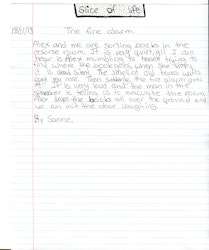 Slice of life
The fire alarm
Alex and me are sorting books in the
reserve room. It is very quiet, all I can
hear is Alex mumbling to himself trying to
find where the book goes, when the
it is dead silent. The smell of old books
my nose. Then suddenly the fire alarm goes
It is very loud and the man in the
speaker is telling us to evacuate the room.
Alex the books all over the ground and
we run out the door laughing.
By Sanne.